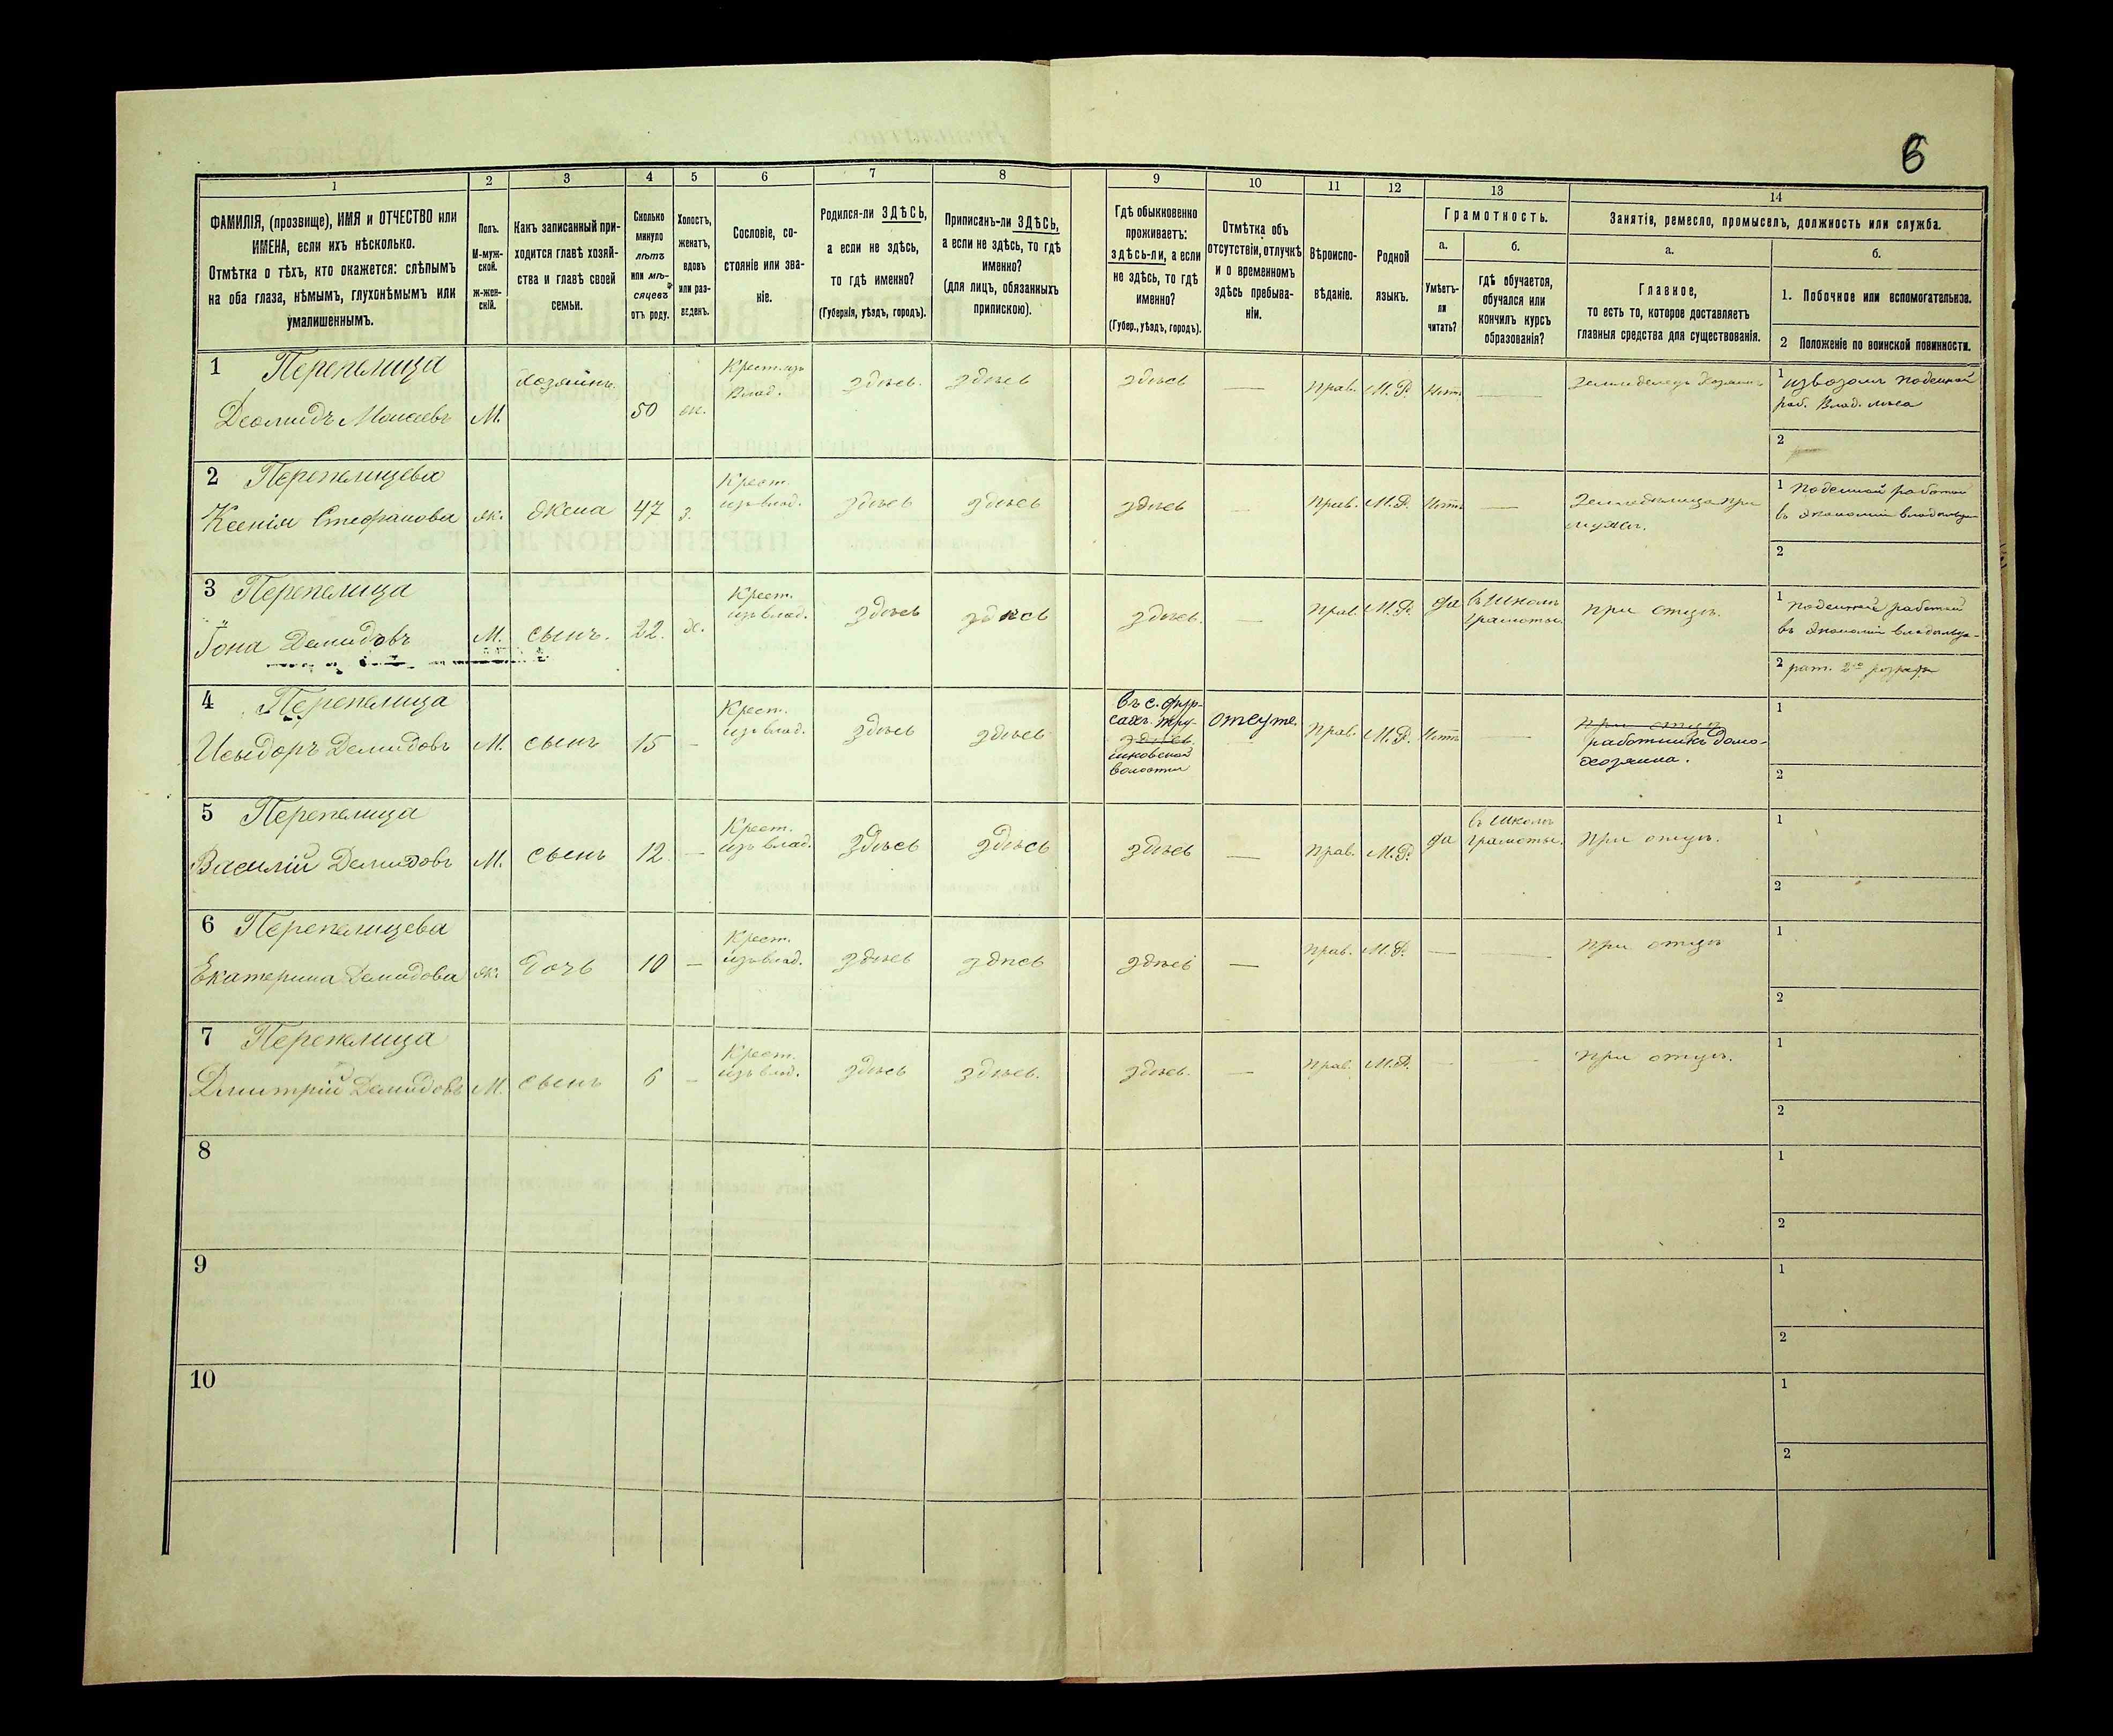 6
1
2
3
4
5
6
7
8
9
10
11
12
13
14
ФАМИЛІЯ, (прозвище), ИМЯ и ОТЧЕСТВО или
ИМЕНА, если ихъ нѣсколько.
Отмѣтка о тѣхъ, кто окажется: слѣпымъ
на оба глаза, нѣмымъ, глухонѣмымъ или
умалишеннымъ.
Полъ.
М-муж-
ской.
Ж-жен-
скій.
Какъ записанный при-
ходится главѣ хозяй-
ства и главѣ своей
семьи.
Сколько
минуло
лѣтъ
или мѣ-
сяцевъ
отъ роду.
Холостъ,
женатъ,
вдовъ
или раз-
веденъ.
Сословіе, со-
стояніе или зва-
ніе.
Родился-ли ЗДѢСЬ,
а если не здѣсь,
то гдѣ именно?
(Губернія, уѣздъ, городъ).
Приписанъ-ли ЗДѢСЬ,
а если не здѣсь, то гдѣ
именно?
(для лицъ, обязанныхъ
припискою).
Гдѣ обыкновенно
проживаетъ:
здѣсь-ли, а если
не здѣсь, то гдѣ
именно?
(Губер., уѣздъ, городъ).
Отмѣтка объ
отсутствіи, отлучкѣ
и о временномъ
здѣсь пребыва-
ніи.
Вѣроиспо-
вѣданіе.
Родной
языкъ.
Грамотность.
а.
б.
Умѣетъ-
ли
читать?
гдѣ обучается,
обучался или
кончилъ курсъ
образованія?
Занятіе, ремесло, промыселъ, должность или служба.
а.
б.
Главное,
то есть то, которое доставляетъ
главныя средства для существованія.
1. Побочное или вспомогательное.
2 Положеніе по воинской повинности.
1 Перепелица
Деомидъ Моисеевъ
М.
Хозяинъ.
50
ж.
Крест. изъ
Влад.
здѣсь.
здѣсь
здѣсь
—
Прав.
М. Р.
Нѣтъ
—
Земледѣлецъ Хозяинъ
1 Извозомъ поденной
раб. Влад. лѣса
2
2 Перепелицева
Ксенія Стефанова
ж.
Жена
47
з.
Крест.
изъ влад.
здѣсь
здѣсь
здѣсь
—
Прав.
М. Р.
Нѣтъ
—
Земледѣлица при
мужѣ.
1 Поденной работой
въ Экономіи владѣльца
2
3 Перепелица
Іона Демидовъ
М.
сынъ.
22.
х.
Крест.
изъ влад.
здѣсь
здѣсь
здѣсь.
—
Прав.
М. Р.
да
въ школѣ
грамоты.
При отцѣ.
1 Поденной работой
въ Экономіи владѣльца
2 рат. 2го разряда
4 Перепелица
Исыдоръ Демидовъ
М.
сынъ
15
—
Крест.
изъ влад.
здѣсь
здѣсь
въ с. Фур-
сахъ. Тру-
здѣсь
шковской
волости
отсутс.
Прав.
М. Р.
Нѣтъ
—
При отцѣ
работникъ домо-
хозяина.
1
2
5 Перепелица
Василій Демидовъ
М.
сынъ
12
—
Крест.
изъ влад.
здѣсь
здѣсь
здѣсь
—
Прав.
М. Р.
да
въ школѣ
грамоты.
При отцѣ.
1
2
6 Перепелицева
Екатерина Демидова
ж.
дочь
10
—
Крест.
изъ влад.
здѣсь
здѣсь
здѣсь
—
Прав.
М. Р.
—
—
При отцѣ
1
2
7 Перепелица
Дмитрій Демидовъ
М.
сынъ
6
—
Крест.
изъ влад.
здѣсь
здѣсь.
здѣсь.
—
Прав.
М. Р.
—
—
При отцѣ.
1
2
8
1
2
9
1
2
10
1
2